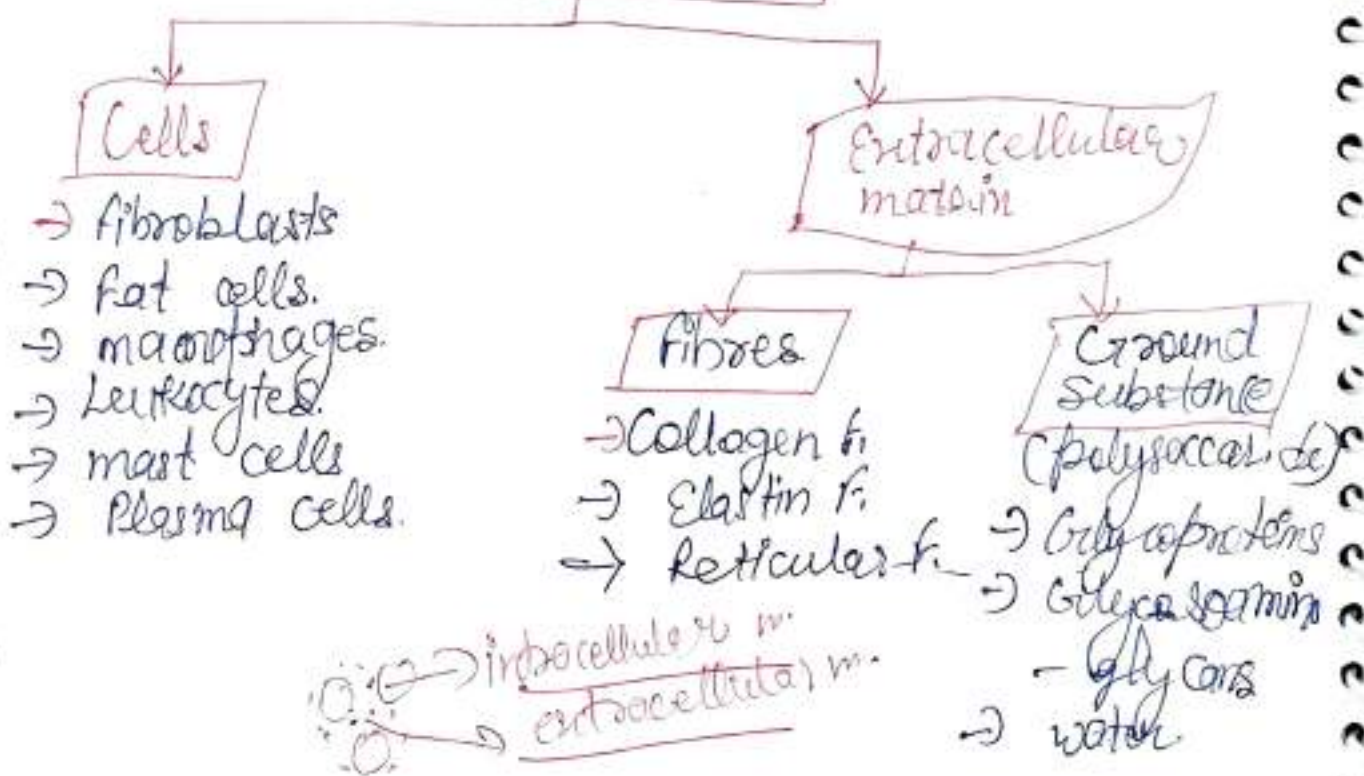 Cells
→ fibroblasts
→ fat cells.
→ macrophages.
→ Leukocytes.
→ mast cells
→ Plasma cells.
Extracellular
matrix
fibres
→ Collagen f.
→ Elastin f.
→ Reticular f.
Ground
Substance
(polysaccaride)
→ Glycoproteins
→ Glycosoamino
- glycans
→ water
→ intracellular m.
→ extracellular m.